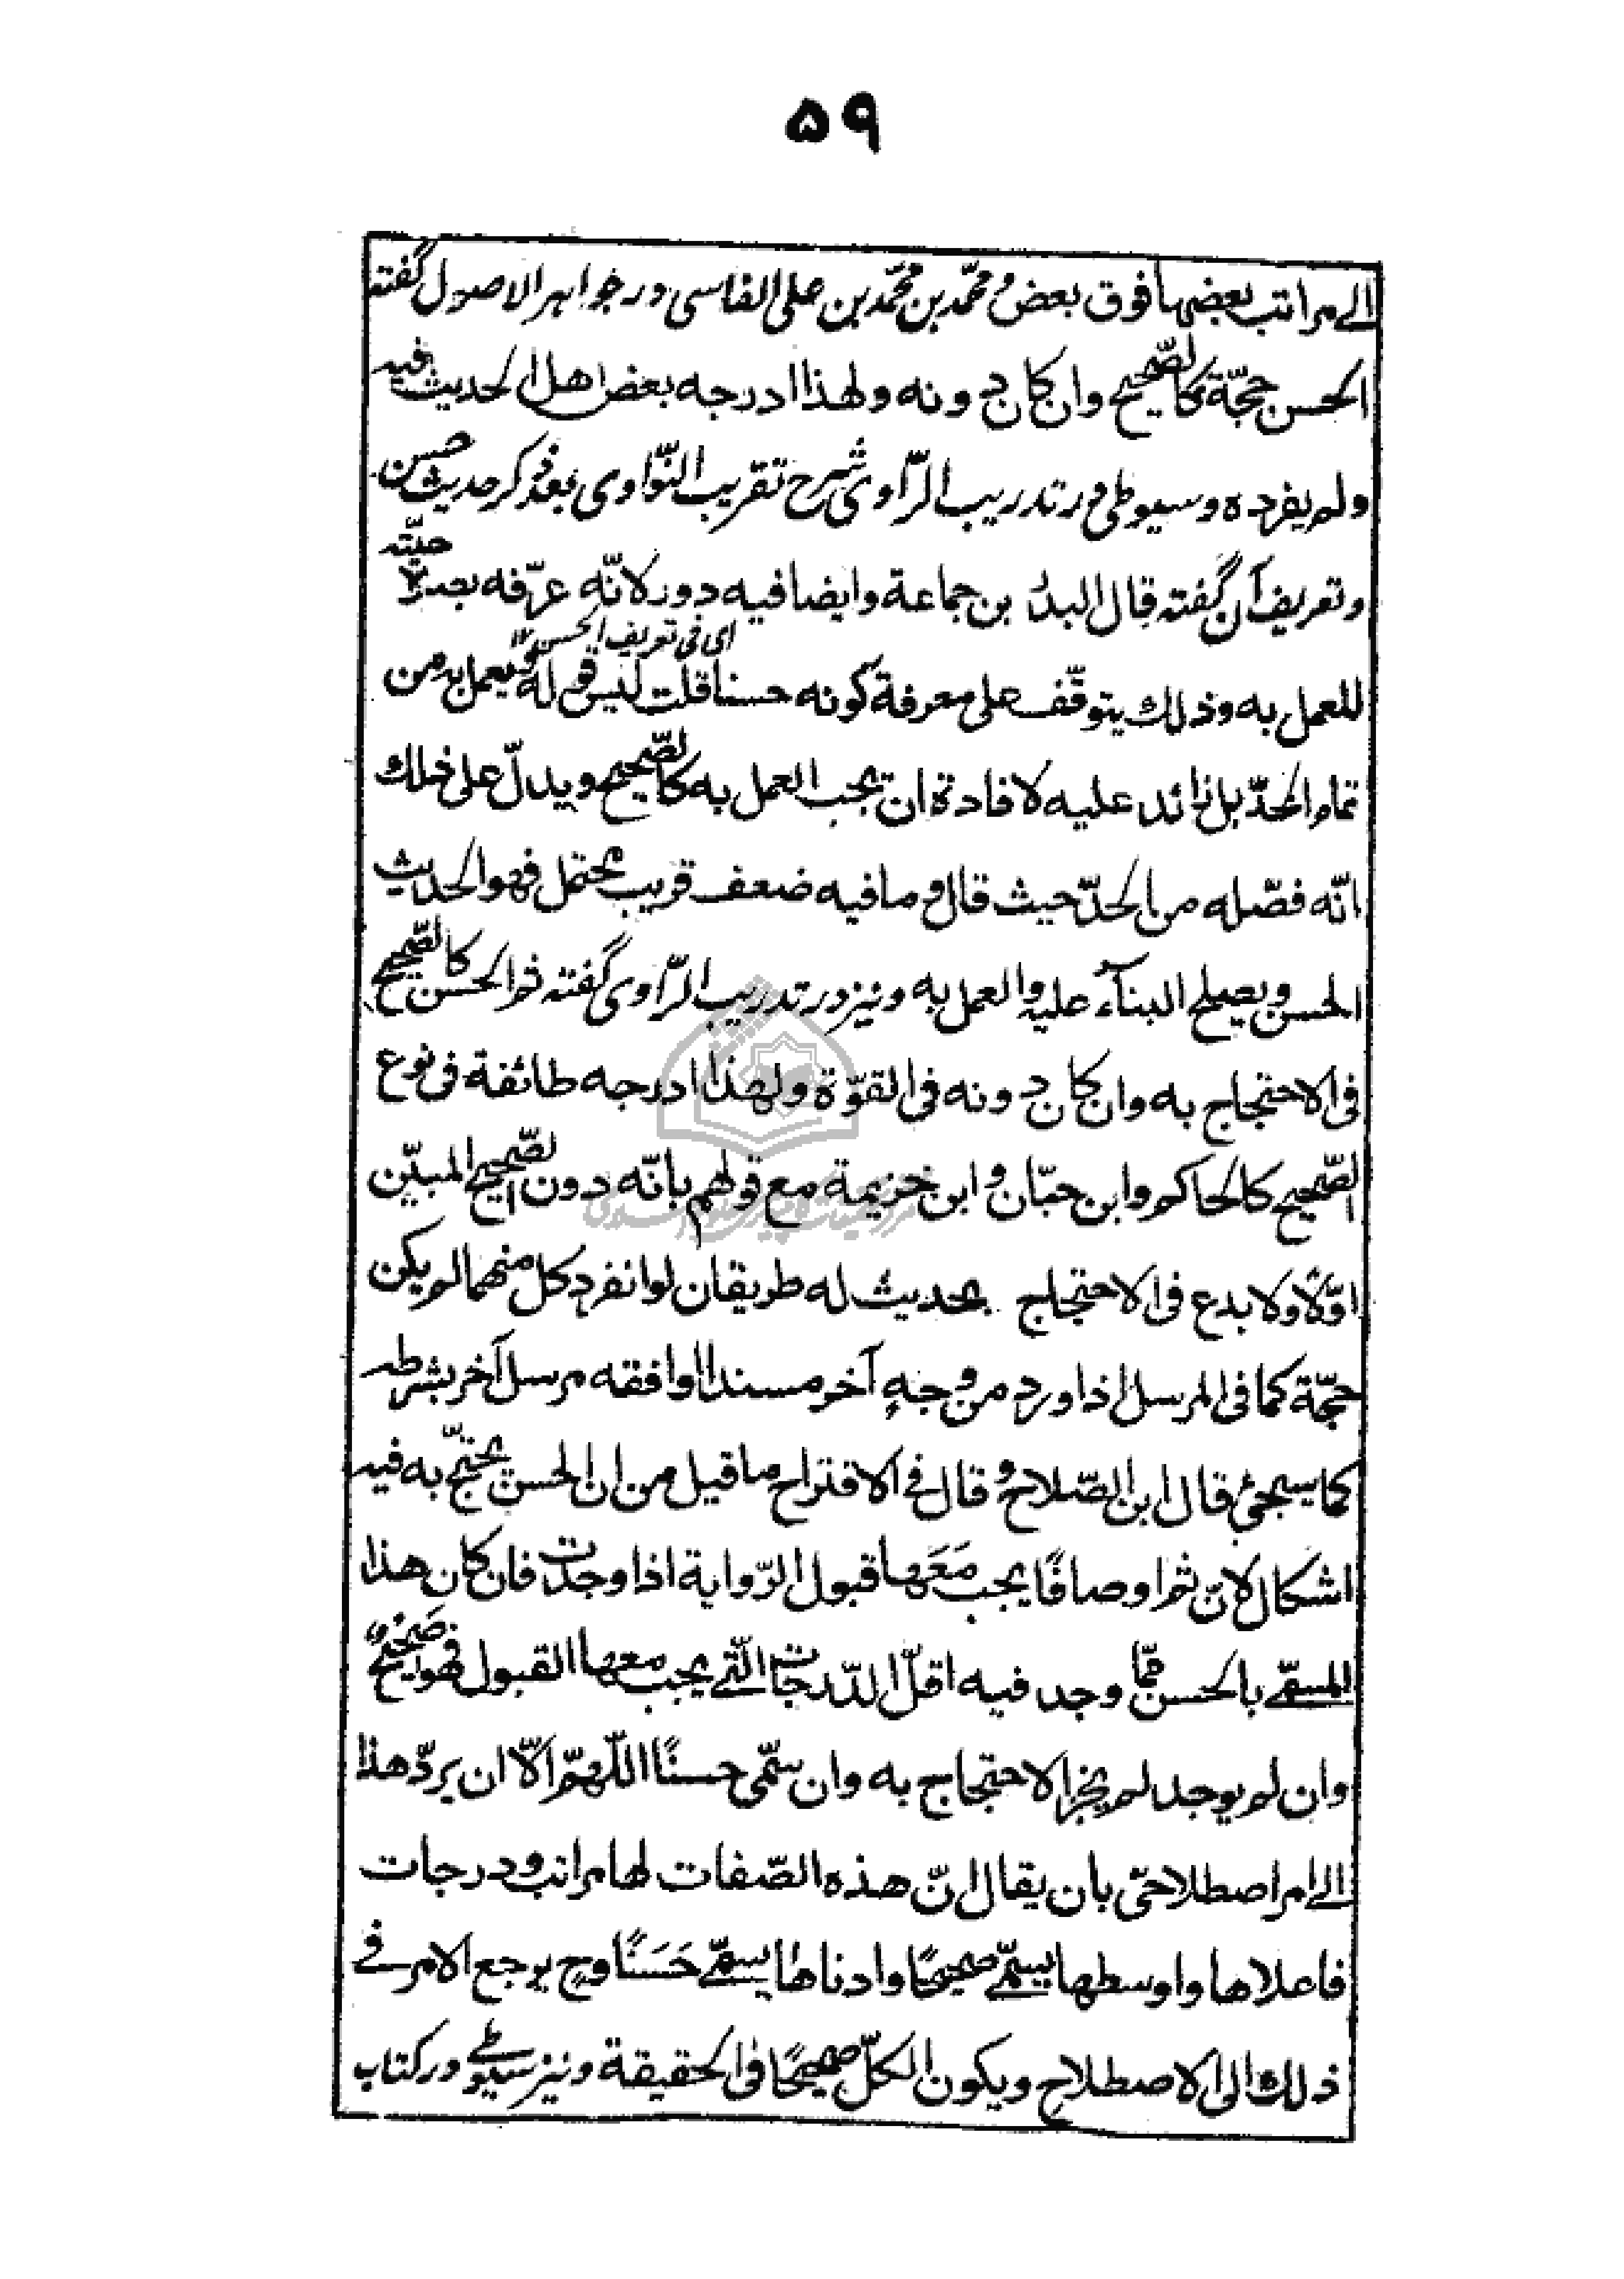 ۵۹
الی مراتب بعضها فوق بعض و محمّد بن محمّد بن علی الفاسی در جواهر الاصول گفته
الحسن حجّة كالصّحیح وان كان دونه ولهذا ادرجه بعض اهل الحدیث فیه
ولم یفرده و سیوطی در تدریب الرّاوی شرح تقریب النّواوی بعد ذكر حدیث حسن
و تعریف آن گفته قال البدر بن جماعة وایضا فیه دور لانّه عرّفه بصلاحیّته
ای فی تعریف الحسن ۱۲
للعمل به وذلك یتوقّف علی معرفة كونه حسنا قلت لیس قوله و یعمل به من
تمام الحدّ بل زائد علیه لافادة ان یجب العمل به كالصّحیح ویدلّ علی ذلك
انّه فصّله من الحدّ حیث قال و ما فیه ضعف قریب محتمل فهو الحدیث
الحسن و یصلح البنآء علیه والعمل به و نیز در تدریب الرّاوی گفته ثم الحسن كالصّحیح
فی الاحتجاج به وان كان دونه فی القوّة ولهذا ادرجه طائفة فی نوع
الصّحیح كالحاكم وابن حبّان وابن خزیمة مع قولهم بانّه دون الصّحیح المبیّن
اوّلا ولا بدع فی الاحتجاج بحدیث له طریقان لو انفرد كل منهما لم یكن
حجّة كما فی المرسل اذا ورد من وجهٍ آخر مسندا او وافقه مرسل آخر بشرطه
كما سیجئ قال ابن الصّلاح و قال فی الاقتراح ما قیل من ان الحسن یحتجّ به فیه
اشكال لان ثم اوصافًا یجب مَعَها قبول الرّوایة اذا وجدت فان كان هذا
المسمّی بالحسن ممّا وجد فیه اقلّ الدّرجات الّتی یجب معها القبول فهو صَحیحٌ
وان لم یوجد لم یجز الاحتجاج به وان سمّی حسنًا اللّهمّ الّا ان یردّ هذا
الی امر اصطلاحیّ بان یقال انّ هذه الصّفات لها مراتب و درجات
فاعلاها واوسطها یسمّی صحیحًا وادناها یسمّی حَسَنًا وحٍ یرجع الامر فی
ذلك الی الاصطلاح ویكون الكلّ صحیحًا فی الحقیقة و نیز سیوطی در كتاب